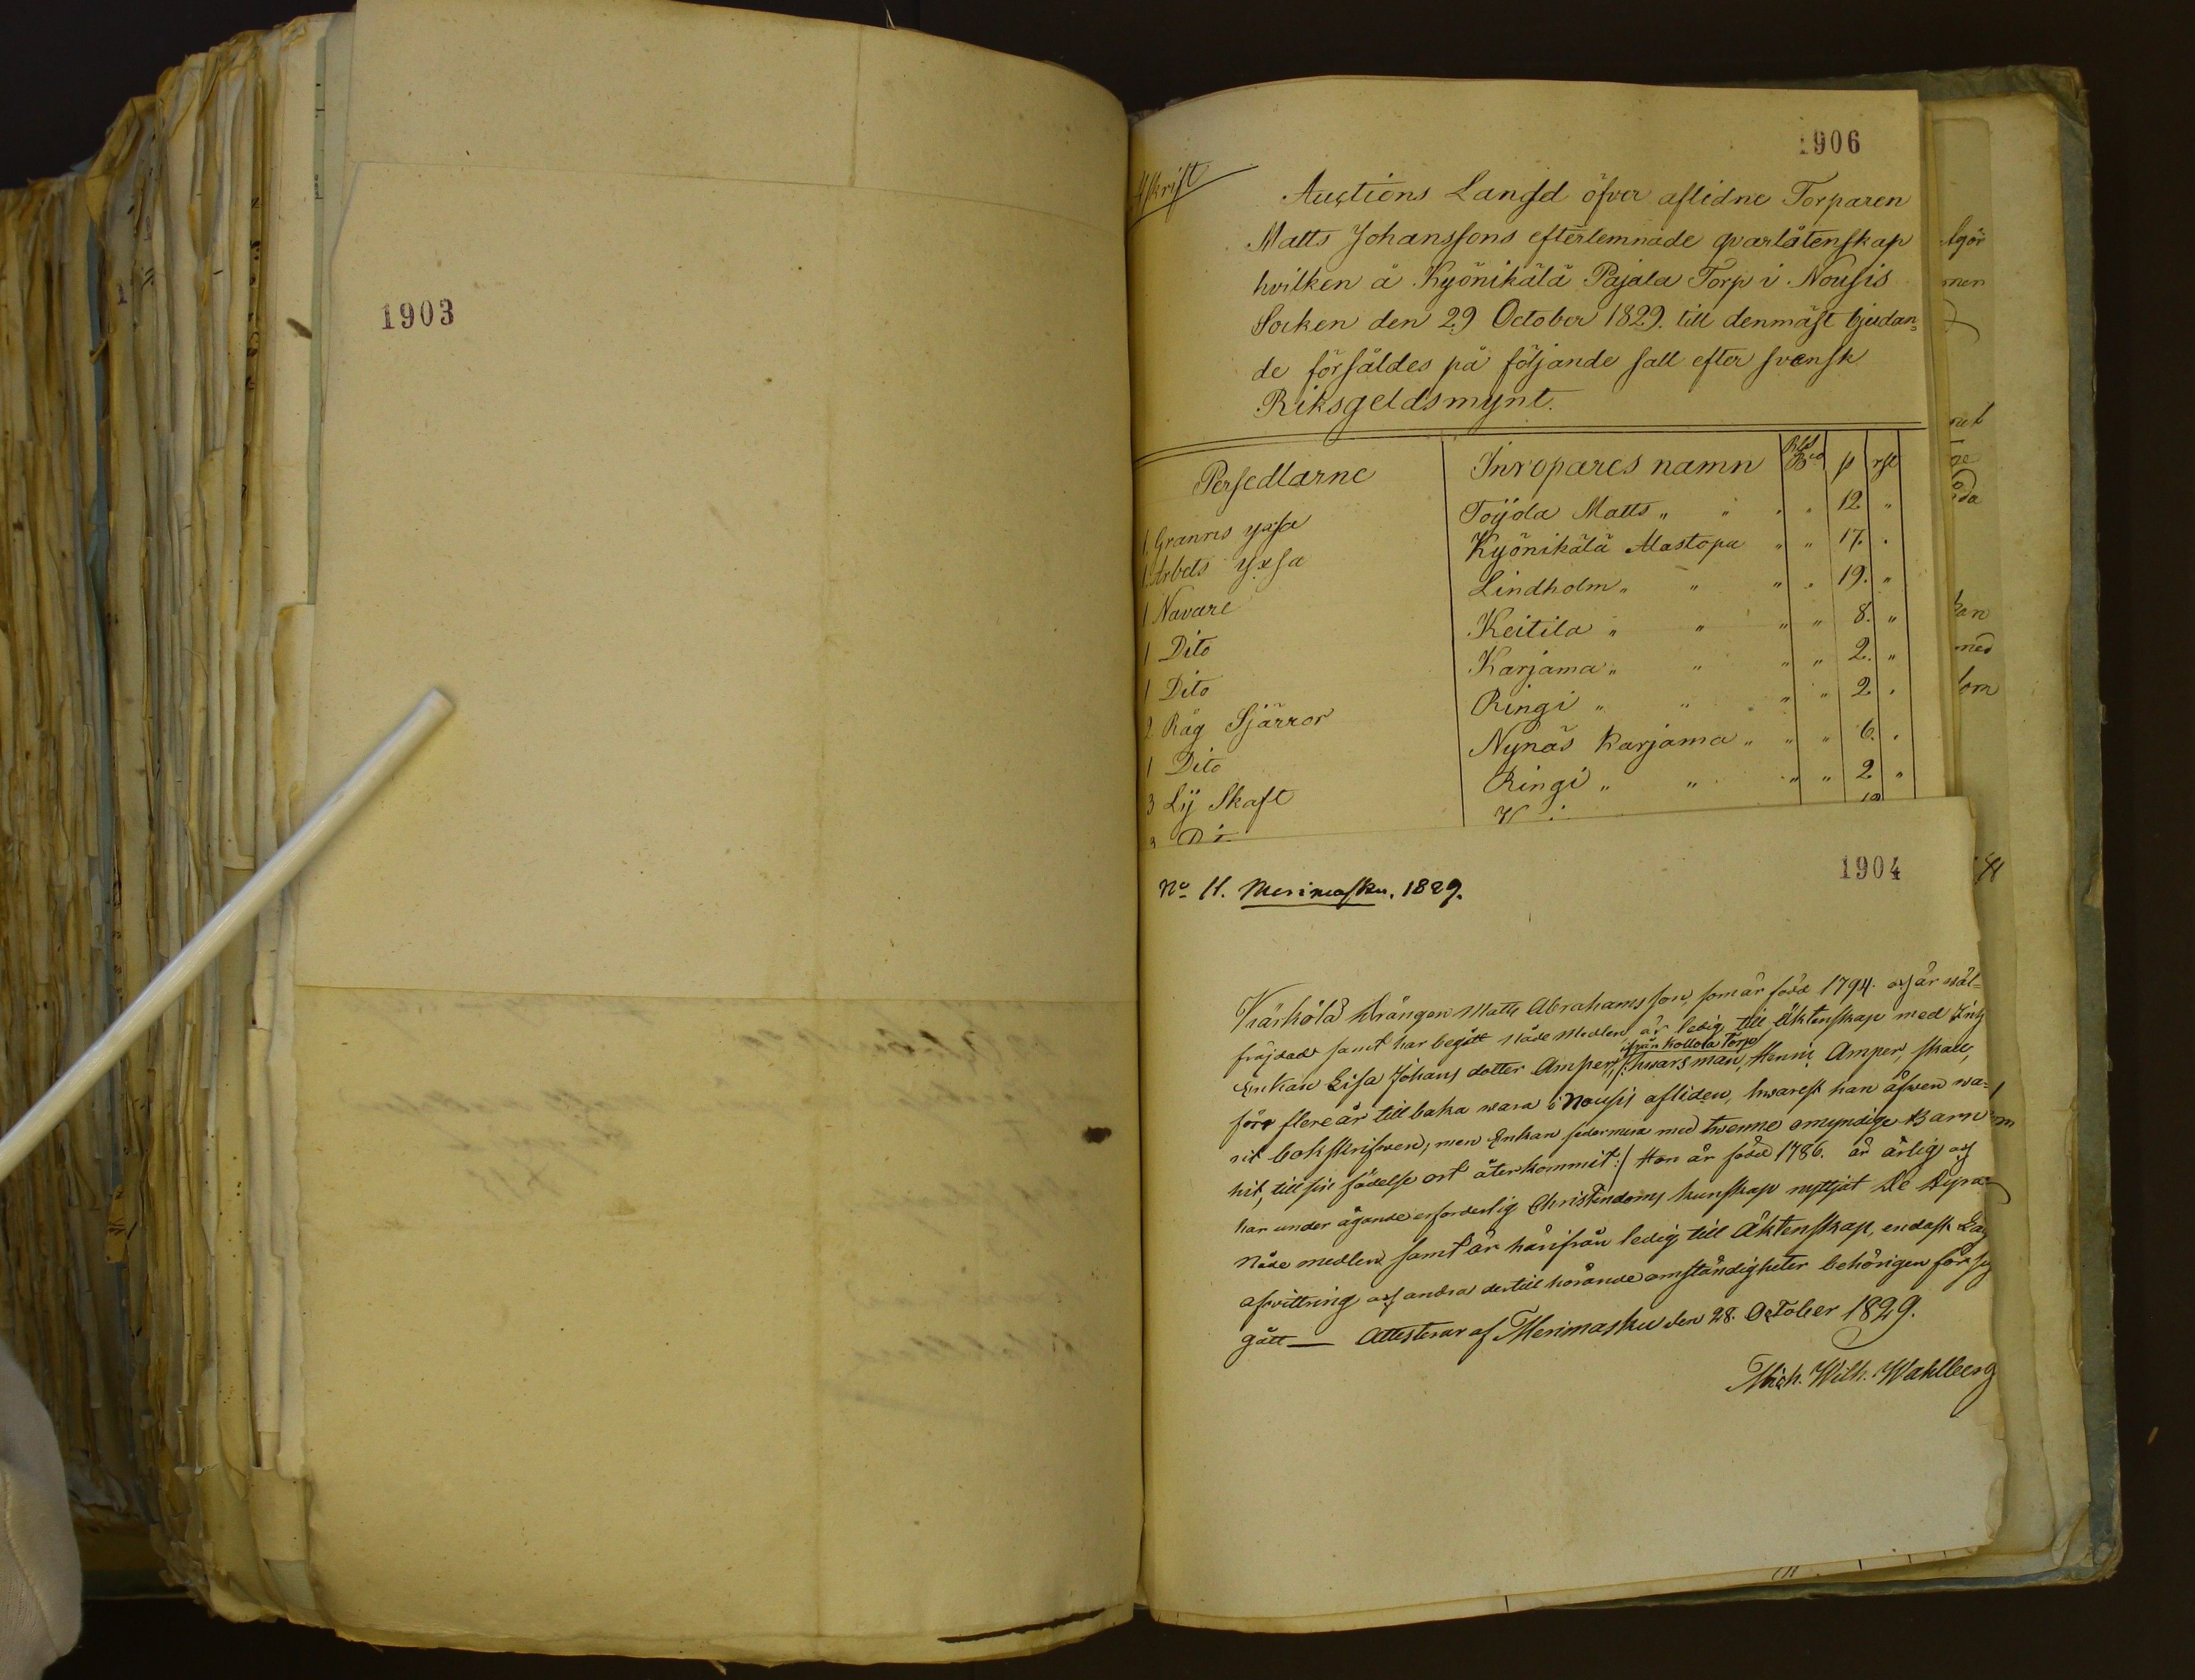 1903
1906
Afskrift
Auctions Längd öfver aflidne Torparen
Matts Johanssons efterlemnade qvarlåtenskap
hvilken å Kyönikälä Pajala Torp i Nousis
Socken den 29 October 1829. till denmäst bjudan=
de försåldes på följande sätt efter svensk
Riksgeldsmynt.
Persedlarne Inropares namn Rd Bco ß rst
1. Granris yxsa Töÿöla Matts „ „ „ „ 12 „
1. Arbets yxsa Kyönikälä Mastopa „ „ 17. „
1 Navare Lindholm „ „ „ „ 19. „
1 Dito Keitila „ „ „ „ 8. „
1 Dito Karjama „ „ „ „ 2. „
2 Råg Sjärror Ringi „ „ „ „ 2 „
1 Dito Nynäs Karjama „ „ „ 6. „
3 Lÿ Skaft Ringi „ „ „ „ 2 „
1904
No 11. Merimasku. 1829.
Drängen Matts Abrahamsson, som är född 1794. och är wäl=
fräjdad samt har begått Nåde Medlen, är ledig till Äktenskap med
Enkan Lisa Johans dotter Amper, /: hwars man, Henric Amper, skall,
ifrån Kollola Torp
före flere år tillbaka wara i Nousis afliden, hwarest han äfwen wa=
rit bokskrifwen, men Enkan sedermera med twenne omyndige Barn
hit, till sin födelse ort återkommit :/ Hon är född 1786. är ärlig och
har under ägande erforderlig Christendoms kunskap nyttjat De Dyra
Nåde medlen samt är härifrån ledig till Äktenskap, endast
afwittring och andra dertill hörande omständigheter behörigen för sig
gått — Attesterar af Merimasku den 28. October 1829.
Mich. Wilh. Wahlberg